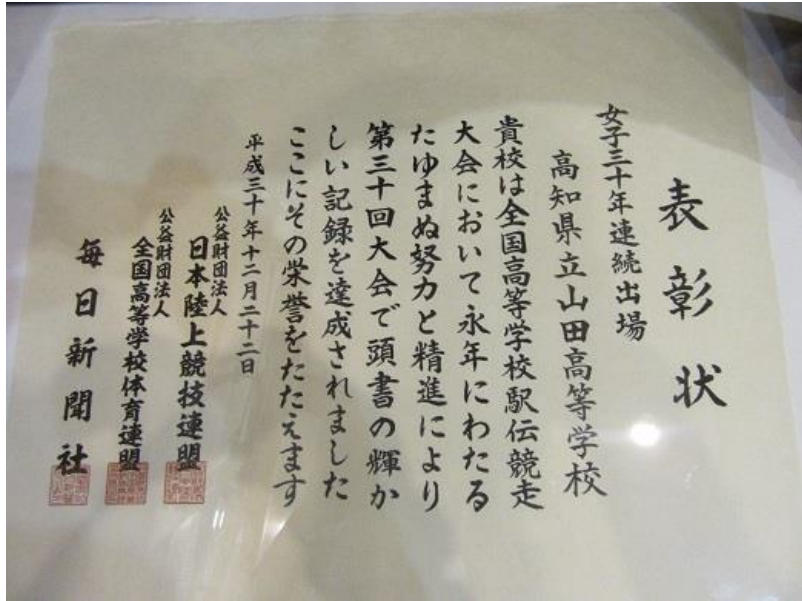 表彰状
女子三十年連続出場
高知県立山田高等学校
貴校は全国高等学校駅伝競走
大会において永年にわたる
たゆまぬ努力と精進により
第三十回大会で頭書の輝か
しい記録を達成されました
ここにその栄誉をたたえます
平成三十年十二月二十二日
公益財団法人
日本陸上競技連盟
公益財団法人
全国高等学校体育連盟
毎日新聞社